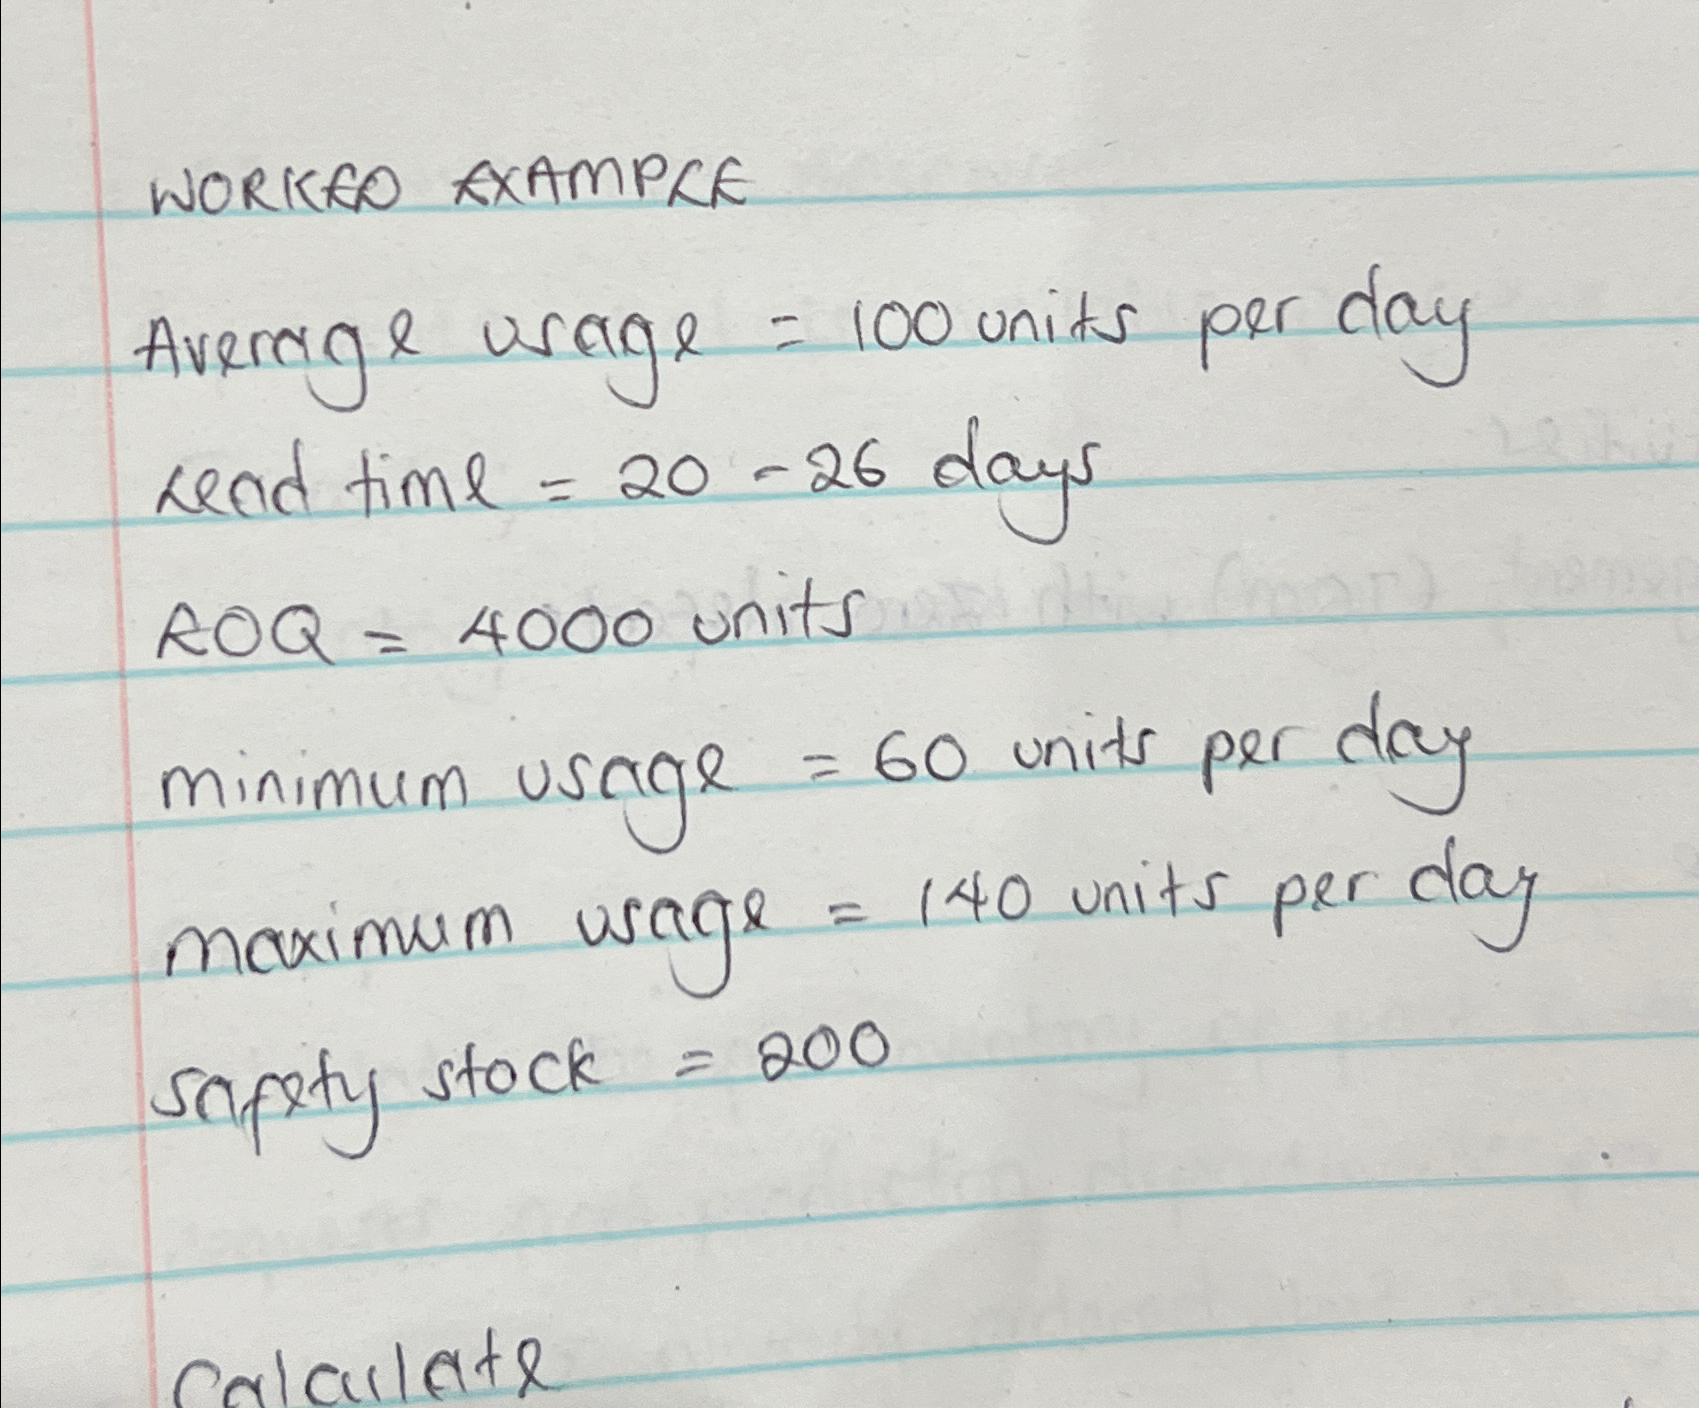 WORKED EXAMPLE
Average usage = 100 units per day
Lead time = 20 - 26 days
ROQ = 4000 units
minimum usage = 60 units per day
maximum usage = 140 units per day
safety stock = 200
Calculate